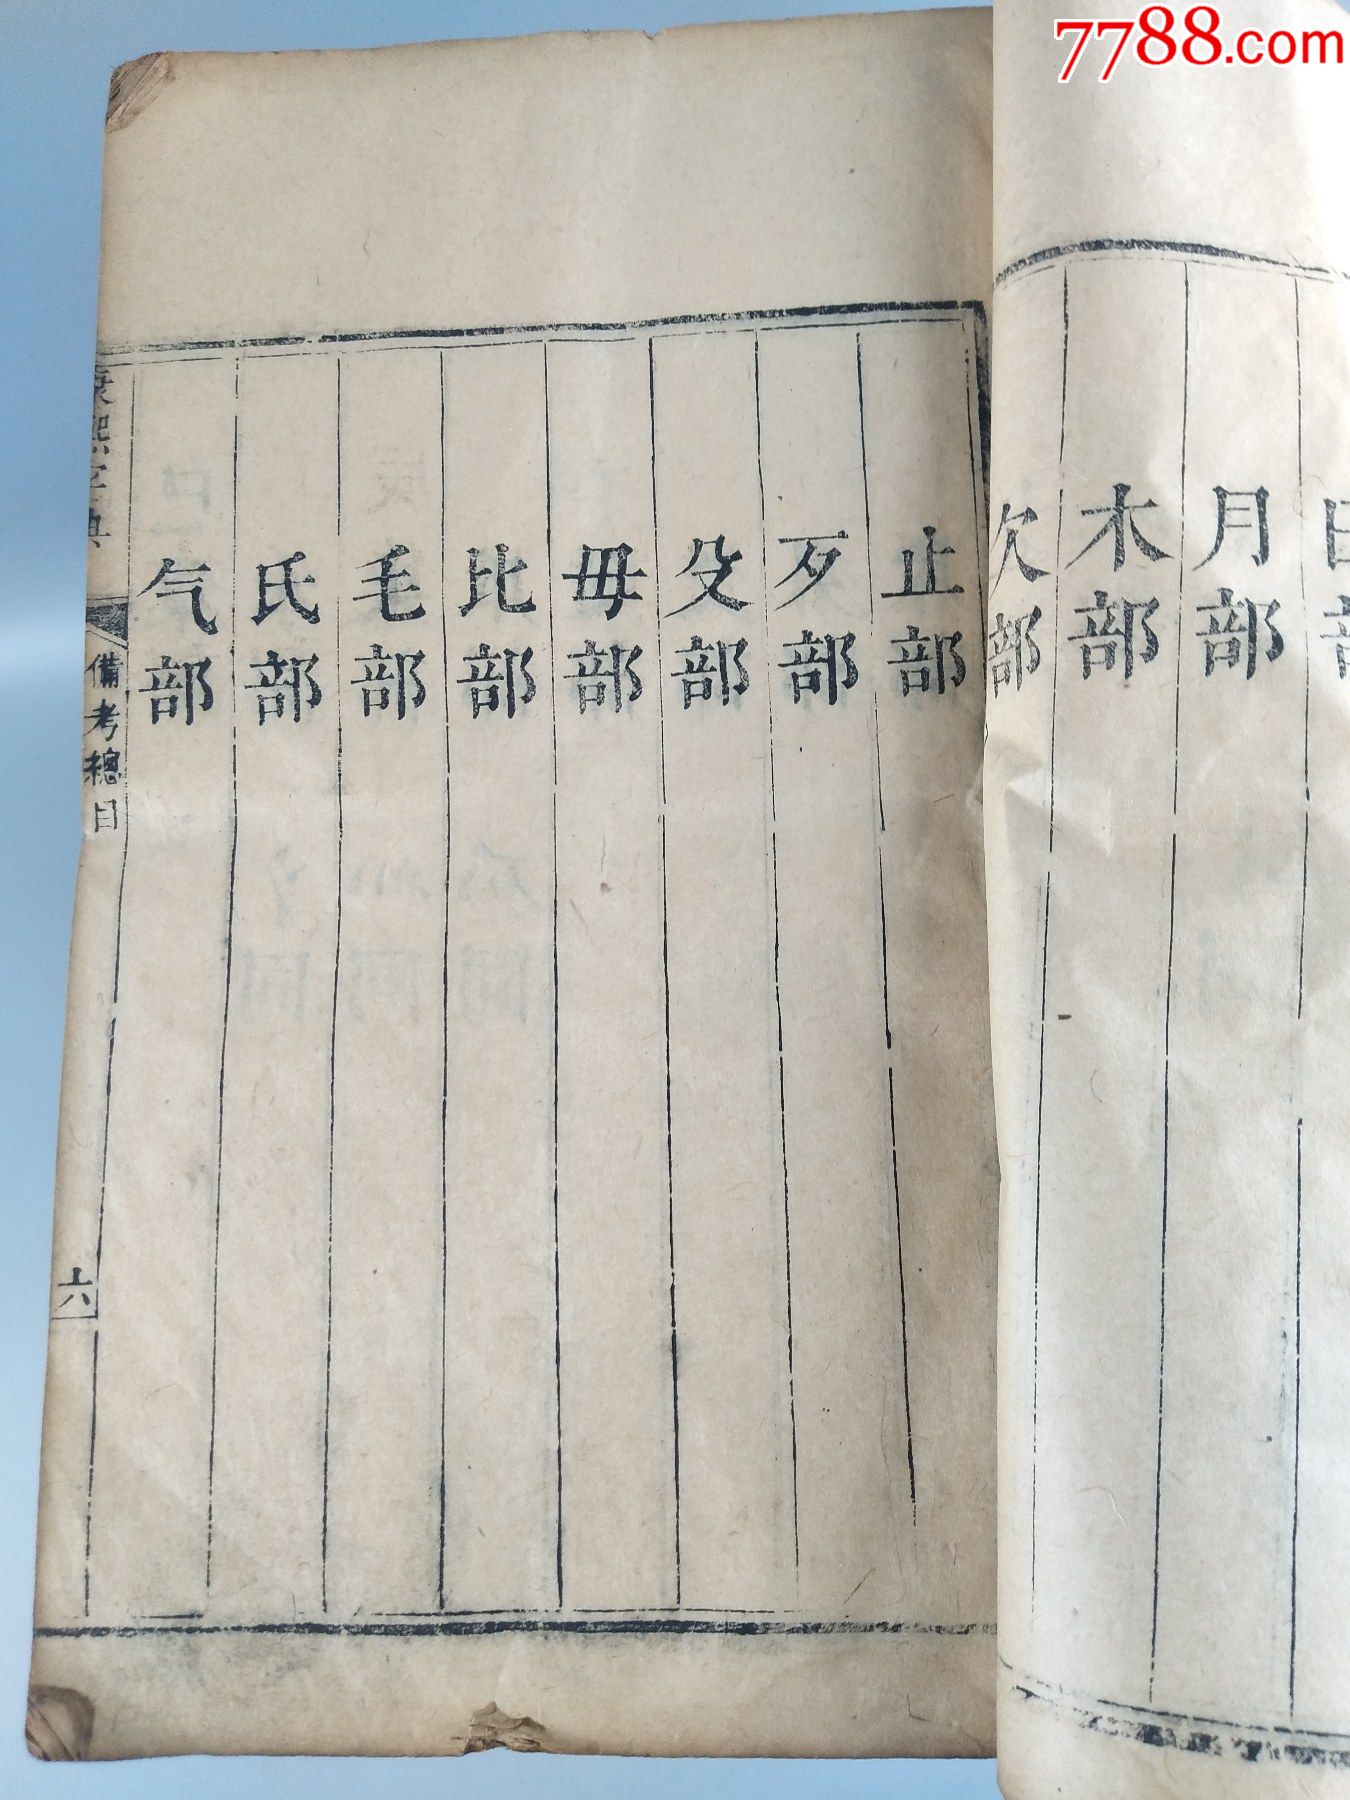 7788.com
月部
木部
欠部
止部
歹部
殳部
毋部
比部
毛部
氏部
气部
康熙字典
備考總目
六